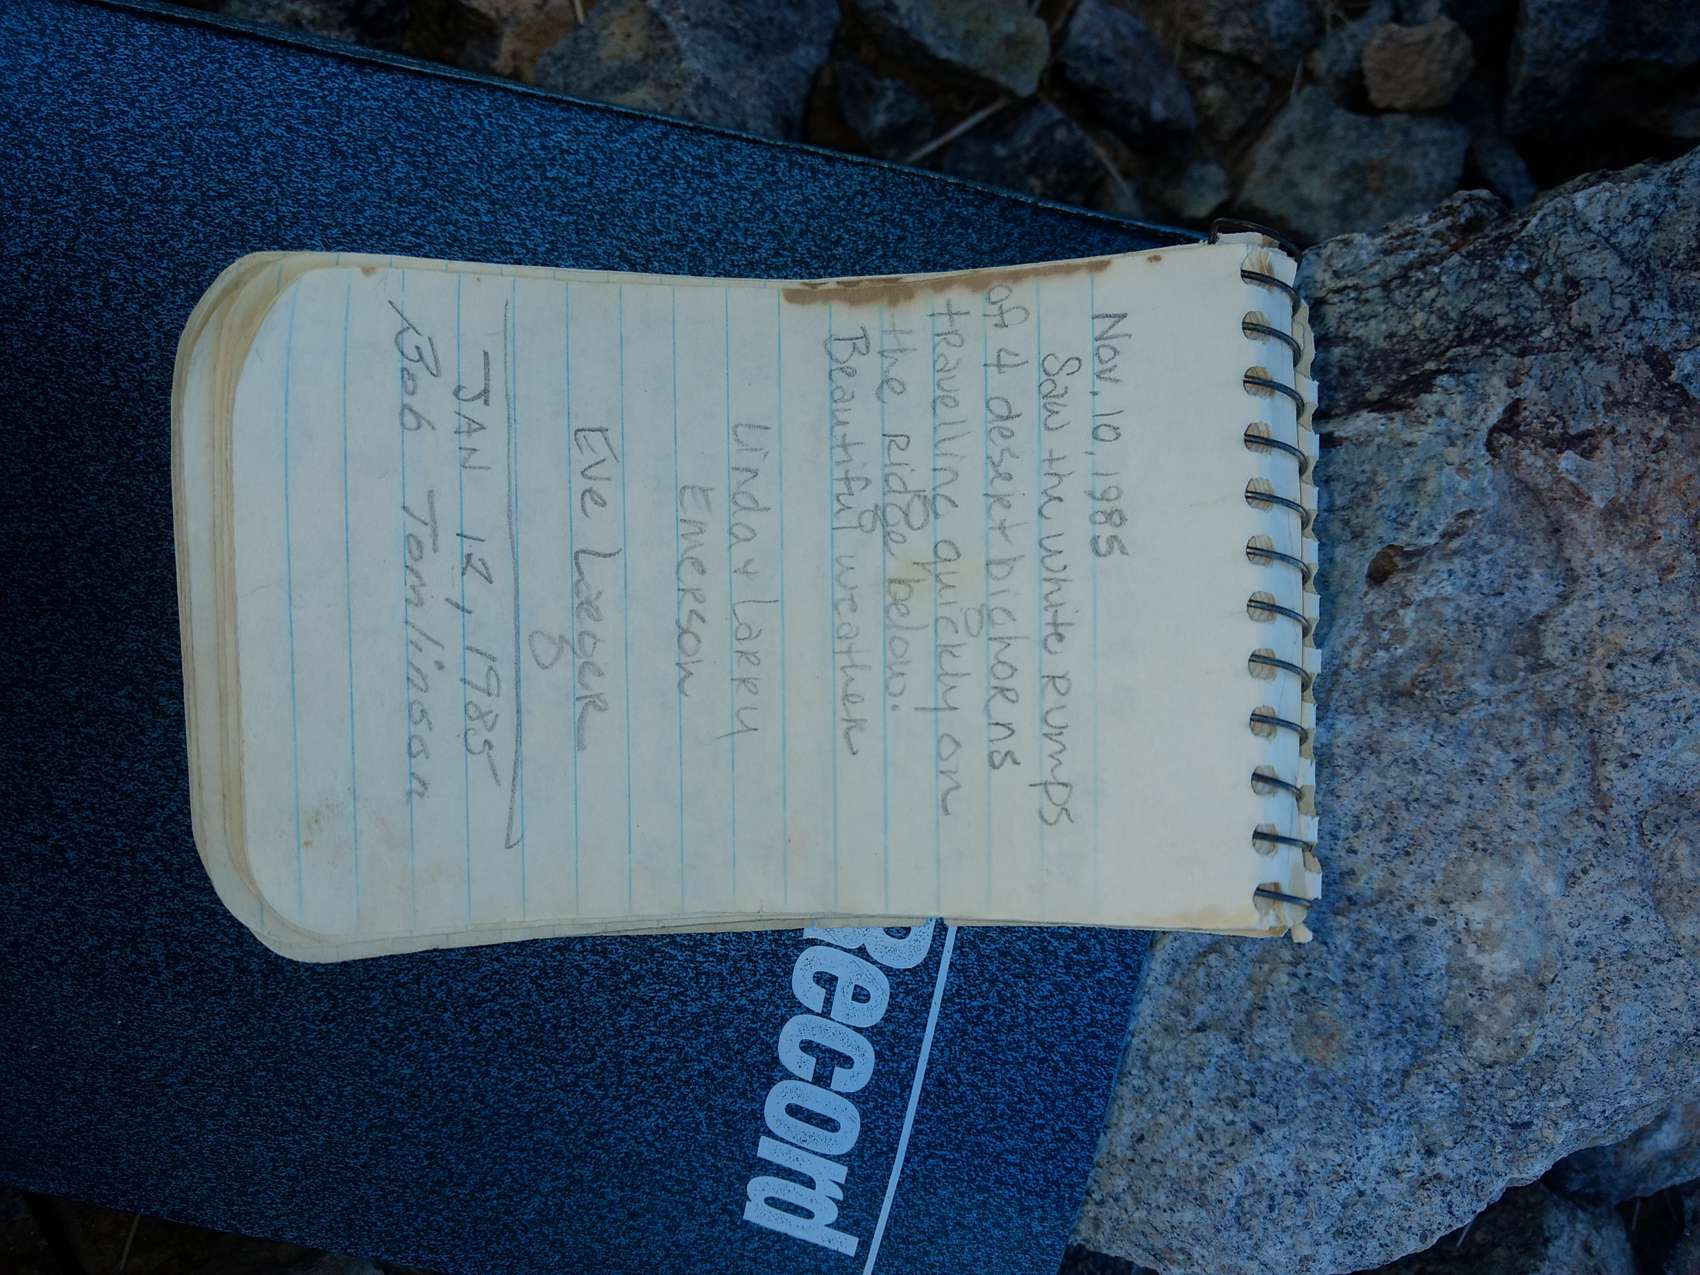 Nov. 10, 1985
Saw the white rumps
of 4 desert bighorns
travelling quickly on
the ridge below.
Beautiful weather
Linda + Larry
Emerson
Eve Laeger
JAN 12, 1985
Bob Tomlinson
Record